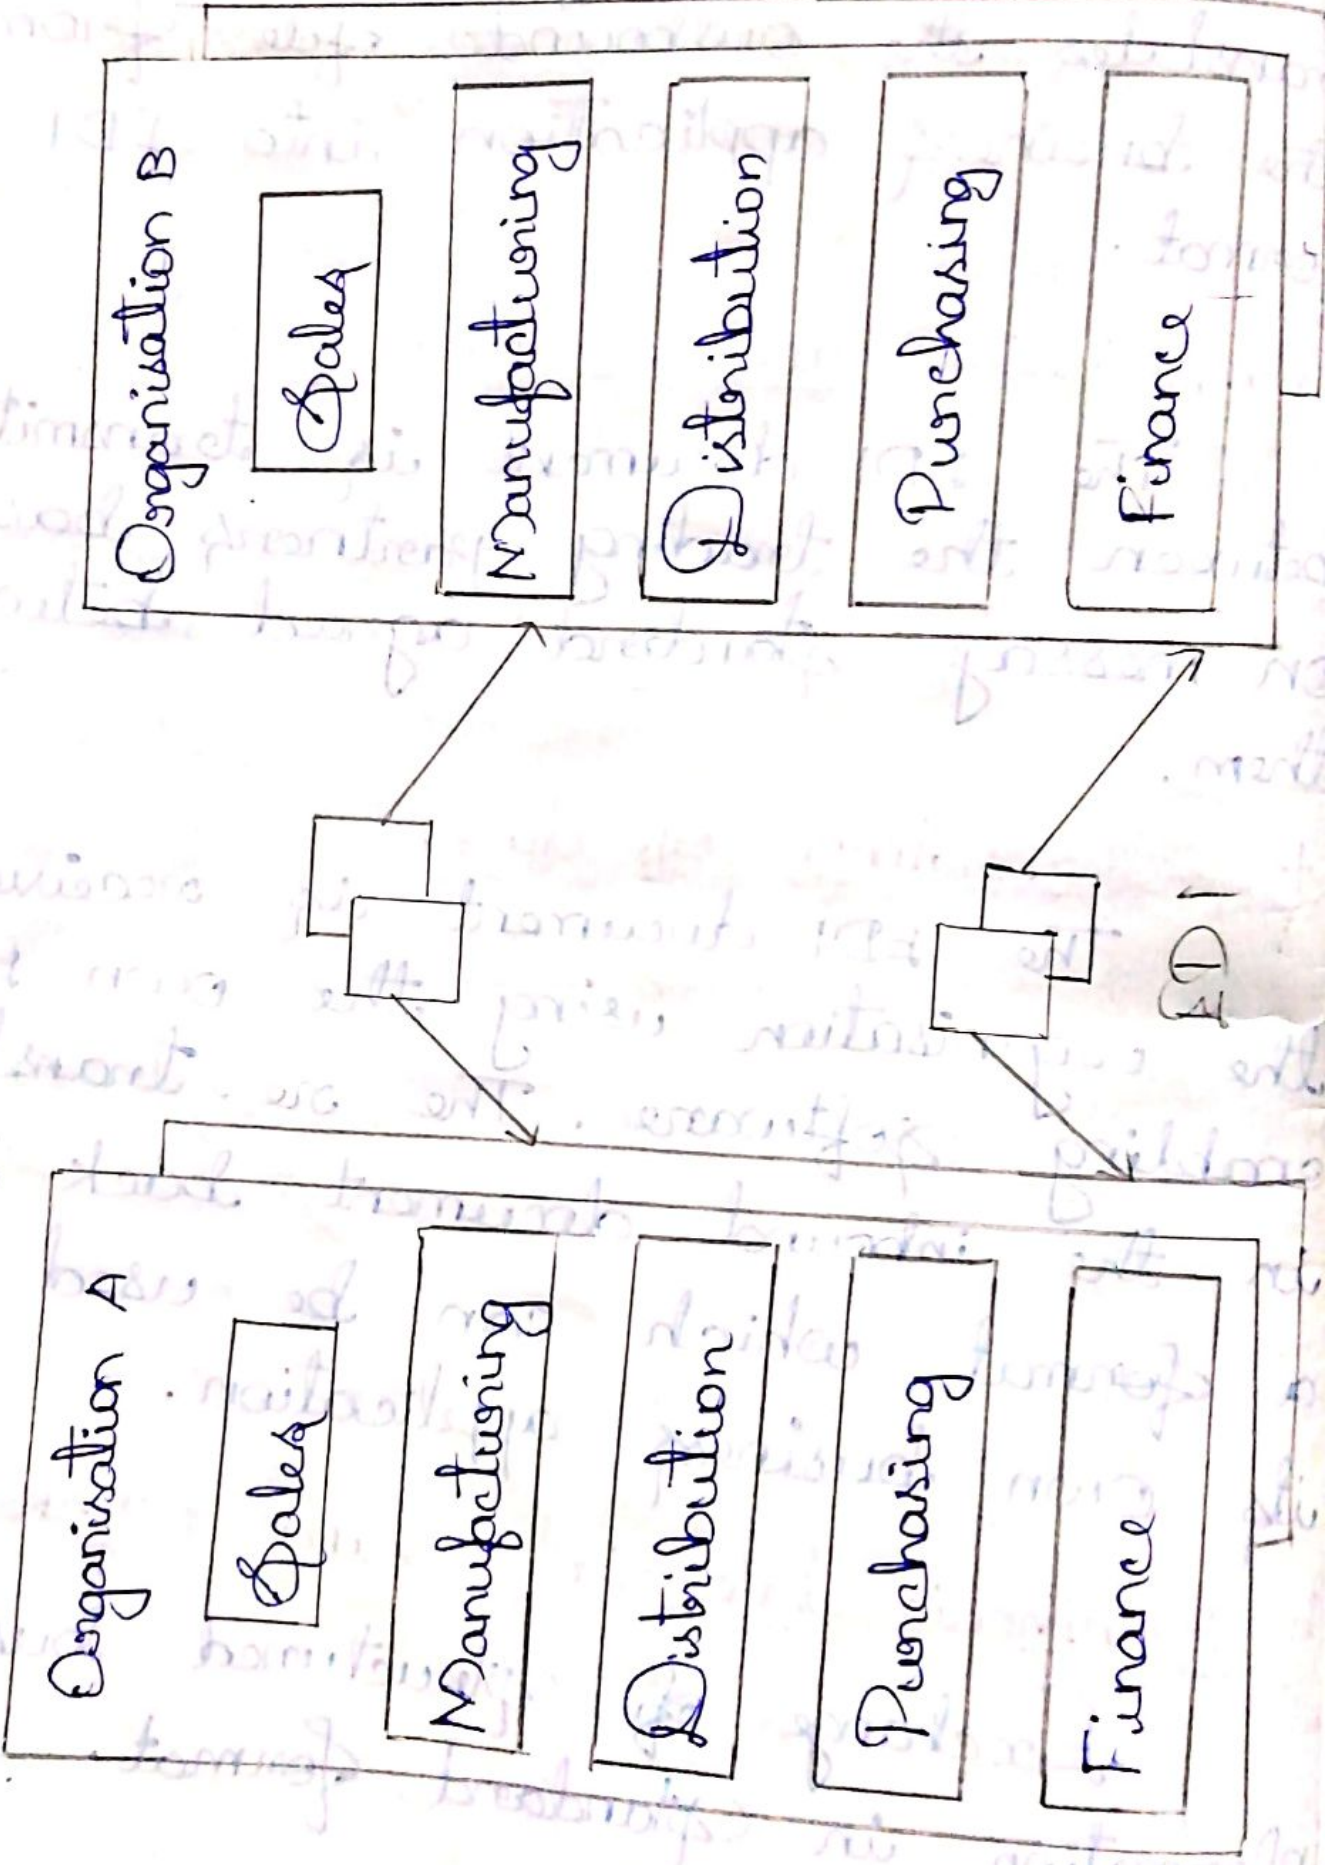 Organisation A
Sales
Manufacturing
Distribution
Purchasing
Finance
EDI
Organisation B
Sales
Manufacturing
Distribution
Purchasing
Finance